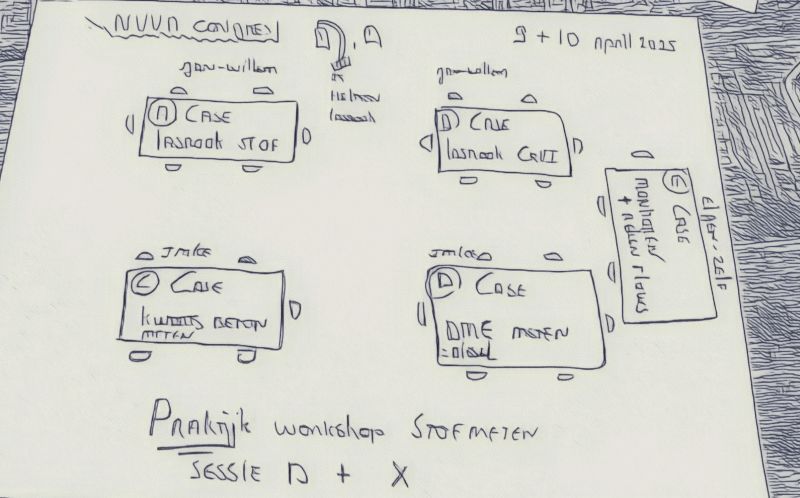 NVVA CONGRES
9 + 10 April 2025
Jan-Willem
A CASE
lasrook STOF
HELMEN
lasrook
Jan-Willem
CASE
lasrook CrVI
E CASE
MONSTERN
FLOWS
Jmke
C CASE
KWARTS BETON
METEN
Jmke
D CASE
DME METEN
=DIESEL
PRAKtijk workshop STOFMETEN
SESSIE D + X